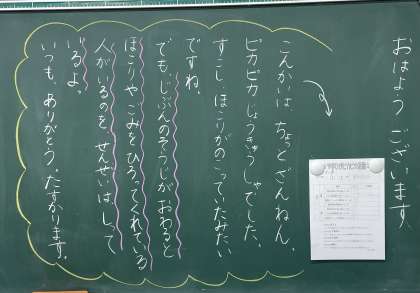 おはよう ございます
こんかいは ちょっと ざんねん、
ピカピカ じょうきゅうしゃでした、
すこし、ほこりが のこっていたみたい
ですね.
でも、じぶんの そうじが おわると
ほこりや ごみを ひろってくれている
人が いるのを せんせいは しって
いるよ。
いつも、ありがとう。たすかります。